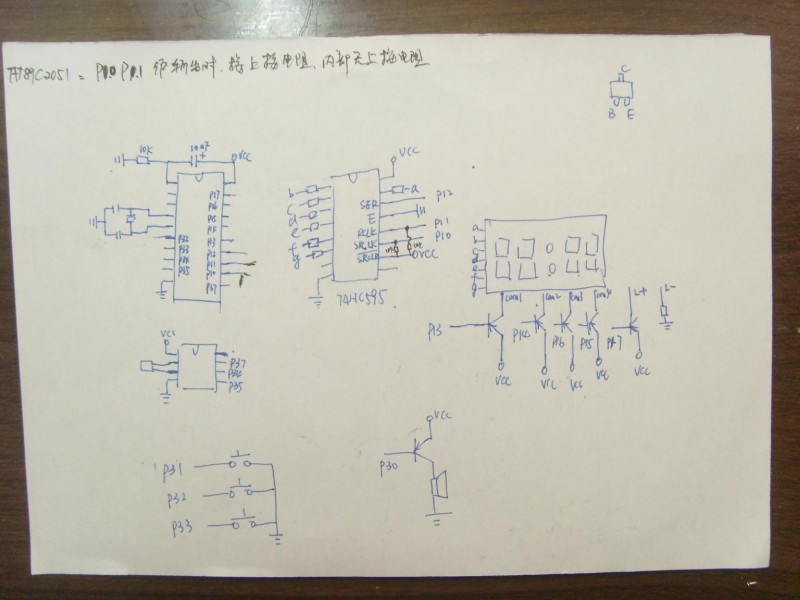 AT89C2051: P1.0 P1.1 作输出时, 接上接电阻, 内部无上接电阻
C
B E
10K
VCC
P17
P16
P15
P14
P13
P12
P11
P10
P37
P32
P33
P34
P35
VCC
b
c
d
e
f
g
a
SER
E
RCLK
SRCLK
SRCLR
P12
P11
P10
VCC
74HC595
a
b
c
d
e
f
g
com1 com2 com3 com4 L+ L-
P13 P14 P16 P15 P17
VCC VCC VCC VCC VCC
VCC
P37
P36
P35
VCC
P30
P31
P32
P33